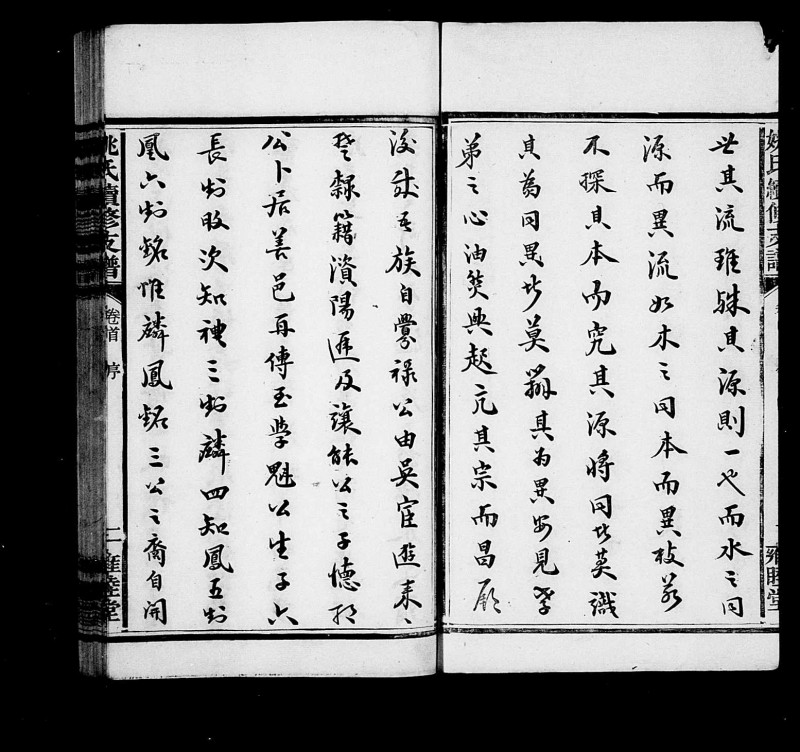 世其流雖殊其源則一也而水之同
源而異流如木之同本而異枝若
不探其本而究其源將同此莫識
其為同異此莫辨其為異安見孝
弟之心油然興起亢其宗而昌厥
後哉吾族自爨祿公由吳宦遊來
楚隸籍滋陽遞及讓能公之子德
公卜居善邑再傳至學魁公生子六
長知 次知禮三知麟四知鳳五知
凰六知銘惟麟鳳銘三公之裔自開
姚氏續修支譜
卷首
序
二
雍睦堂